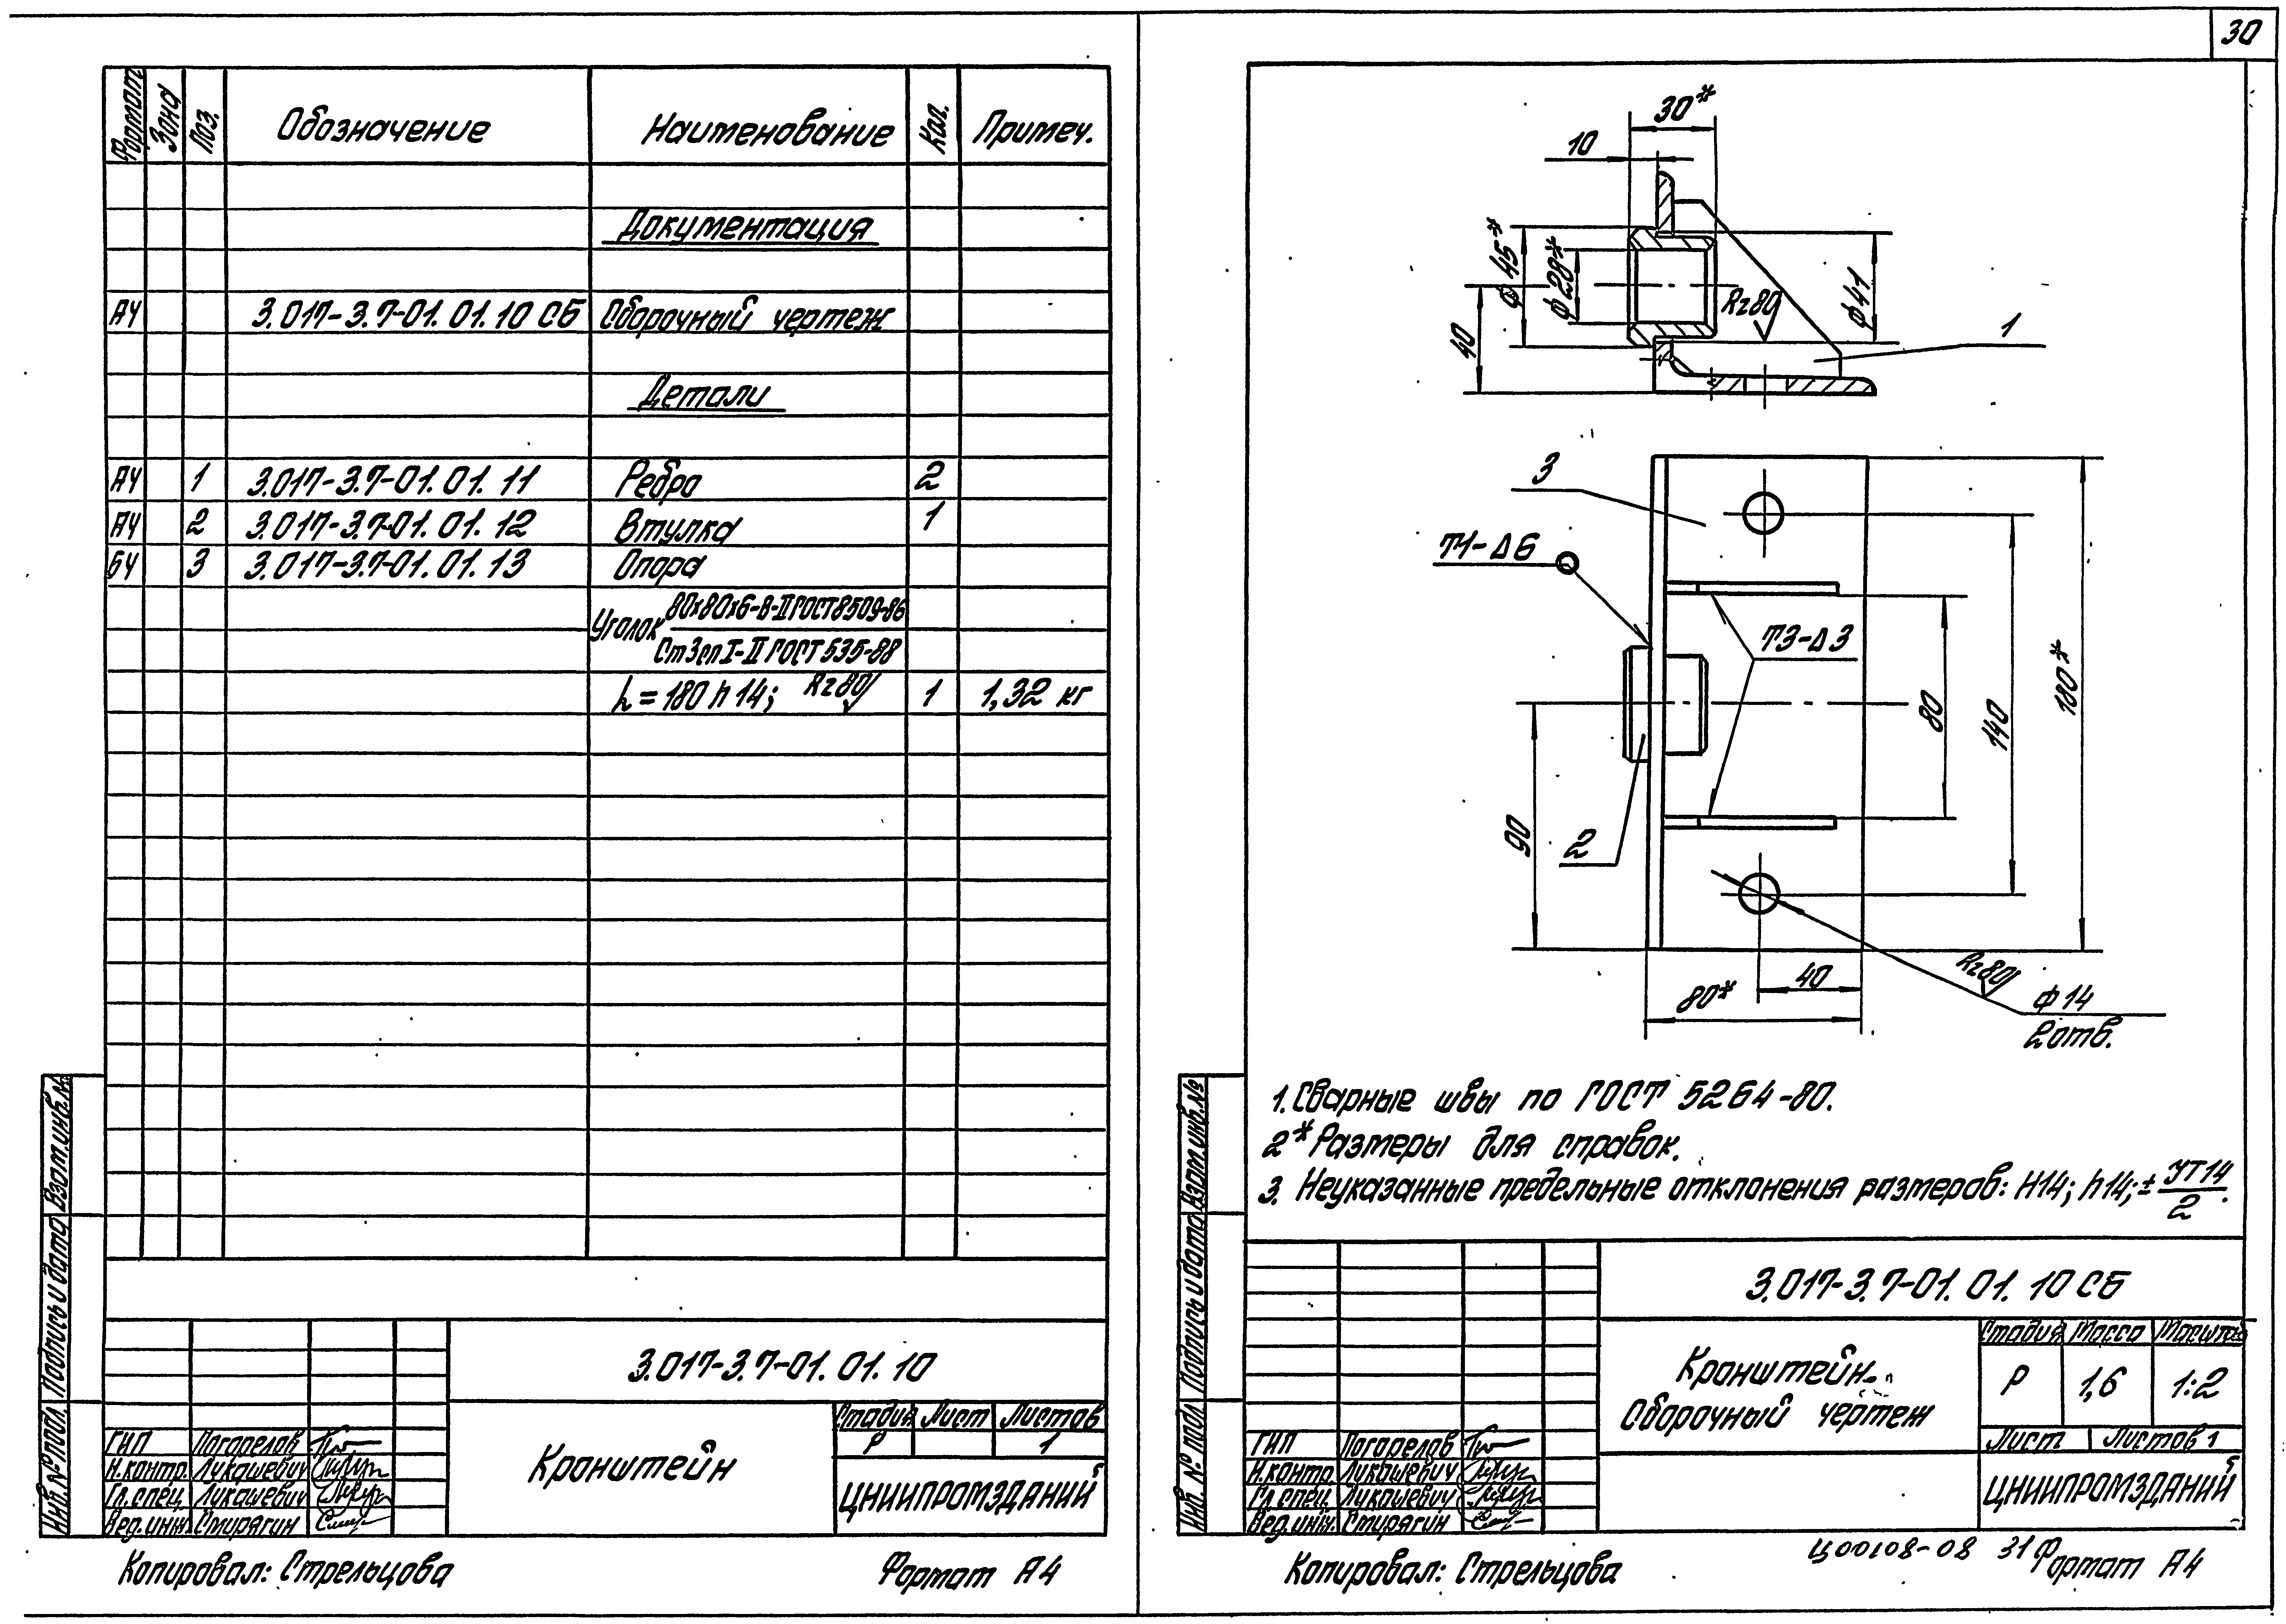 30
Формат Зона Поз. Обозначение Наименование Кол. Примеч.
Документация
А4 3.017-3.7-01.01.10 СБ Сборочный чертеж
Детали
А4 1 3.017-3.7-01.01.11 Ребро 2
А4 2 3.017-3.7-01.01.12 Втулка 1
БЧ 3 3.017-3.7-01.01.13 Опора
Уголок 80х80х6-В-II ГОСТ 8509-86
Ст3сп I-II ГОСТ 535-88
h = 180 h14; Rz80 1 1,32 кг
Взам.инв.№
Подпись и дата
Инв.№ подл.
3.017-3.7-01.01.10
Кронштейн
Стадия Лист Листов
Р 1
ЦНИИПРОМЗДАНИЙ
ГИП Погорелов
Н.контр. Лукашевич
Гл.спец. Лукашевич
Вед.инж. Смирягин
Копировал: Стрельцова Формат А4
30*
10
ф45*
ф28*
Rz80
ф41
40
1
3
Т1-Δ6
Т3-Δ3
80
140
180*
90
2
40
80*
Rz80
ф14
2отв.
1. Сварные швы по ГОСТ 5264-80.
2* Размеры для справок.
3. Неуказанные предельные отклонения размеров: Н14; h14; ± УТ14/2.
Взам.инв.№
Подпись и дата
Инв.№ подл.
3.017-3.7-01.01.10 СБ
Кронштейн.
Сборочный чертеж
Стадия Масса Масштаб
Р 1,6 1:2
Лист Листов 1
ЦНИИПРОМЗДАНИЙ
ГИП Погорелов
Н.контр. Лукашевич
Гл.спец. Лукашевич
Вед.инж. Смирягин
Ц00108-08 31
Копировал: Стрельцова Формат А4